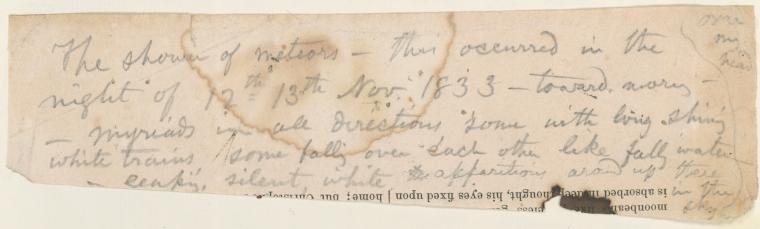 The shower of meteors — this occurred in the
night of 12th 13th Nov. 1833 — toward morng —
— myriads in all directions some with long shing
white trains some fallg over each other like fallg water
— silent, white apparitions around up there
in the
sky
over
my
head
is absorbed in deep thought, his eyes fixed upon | home; but
moonbeams